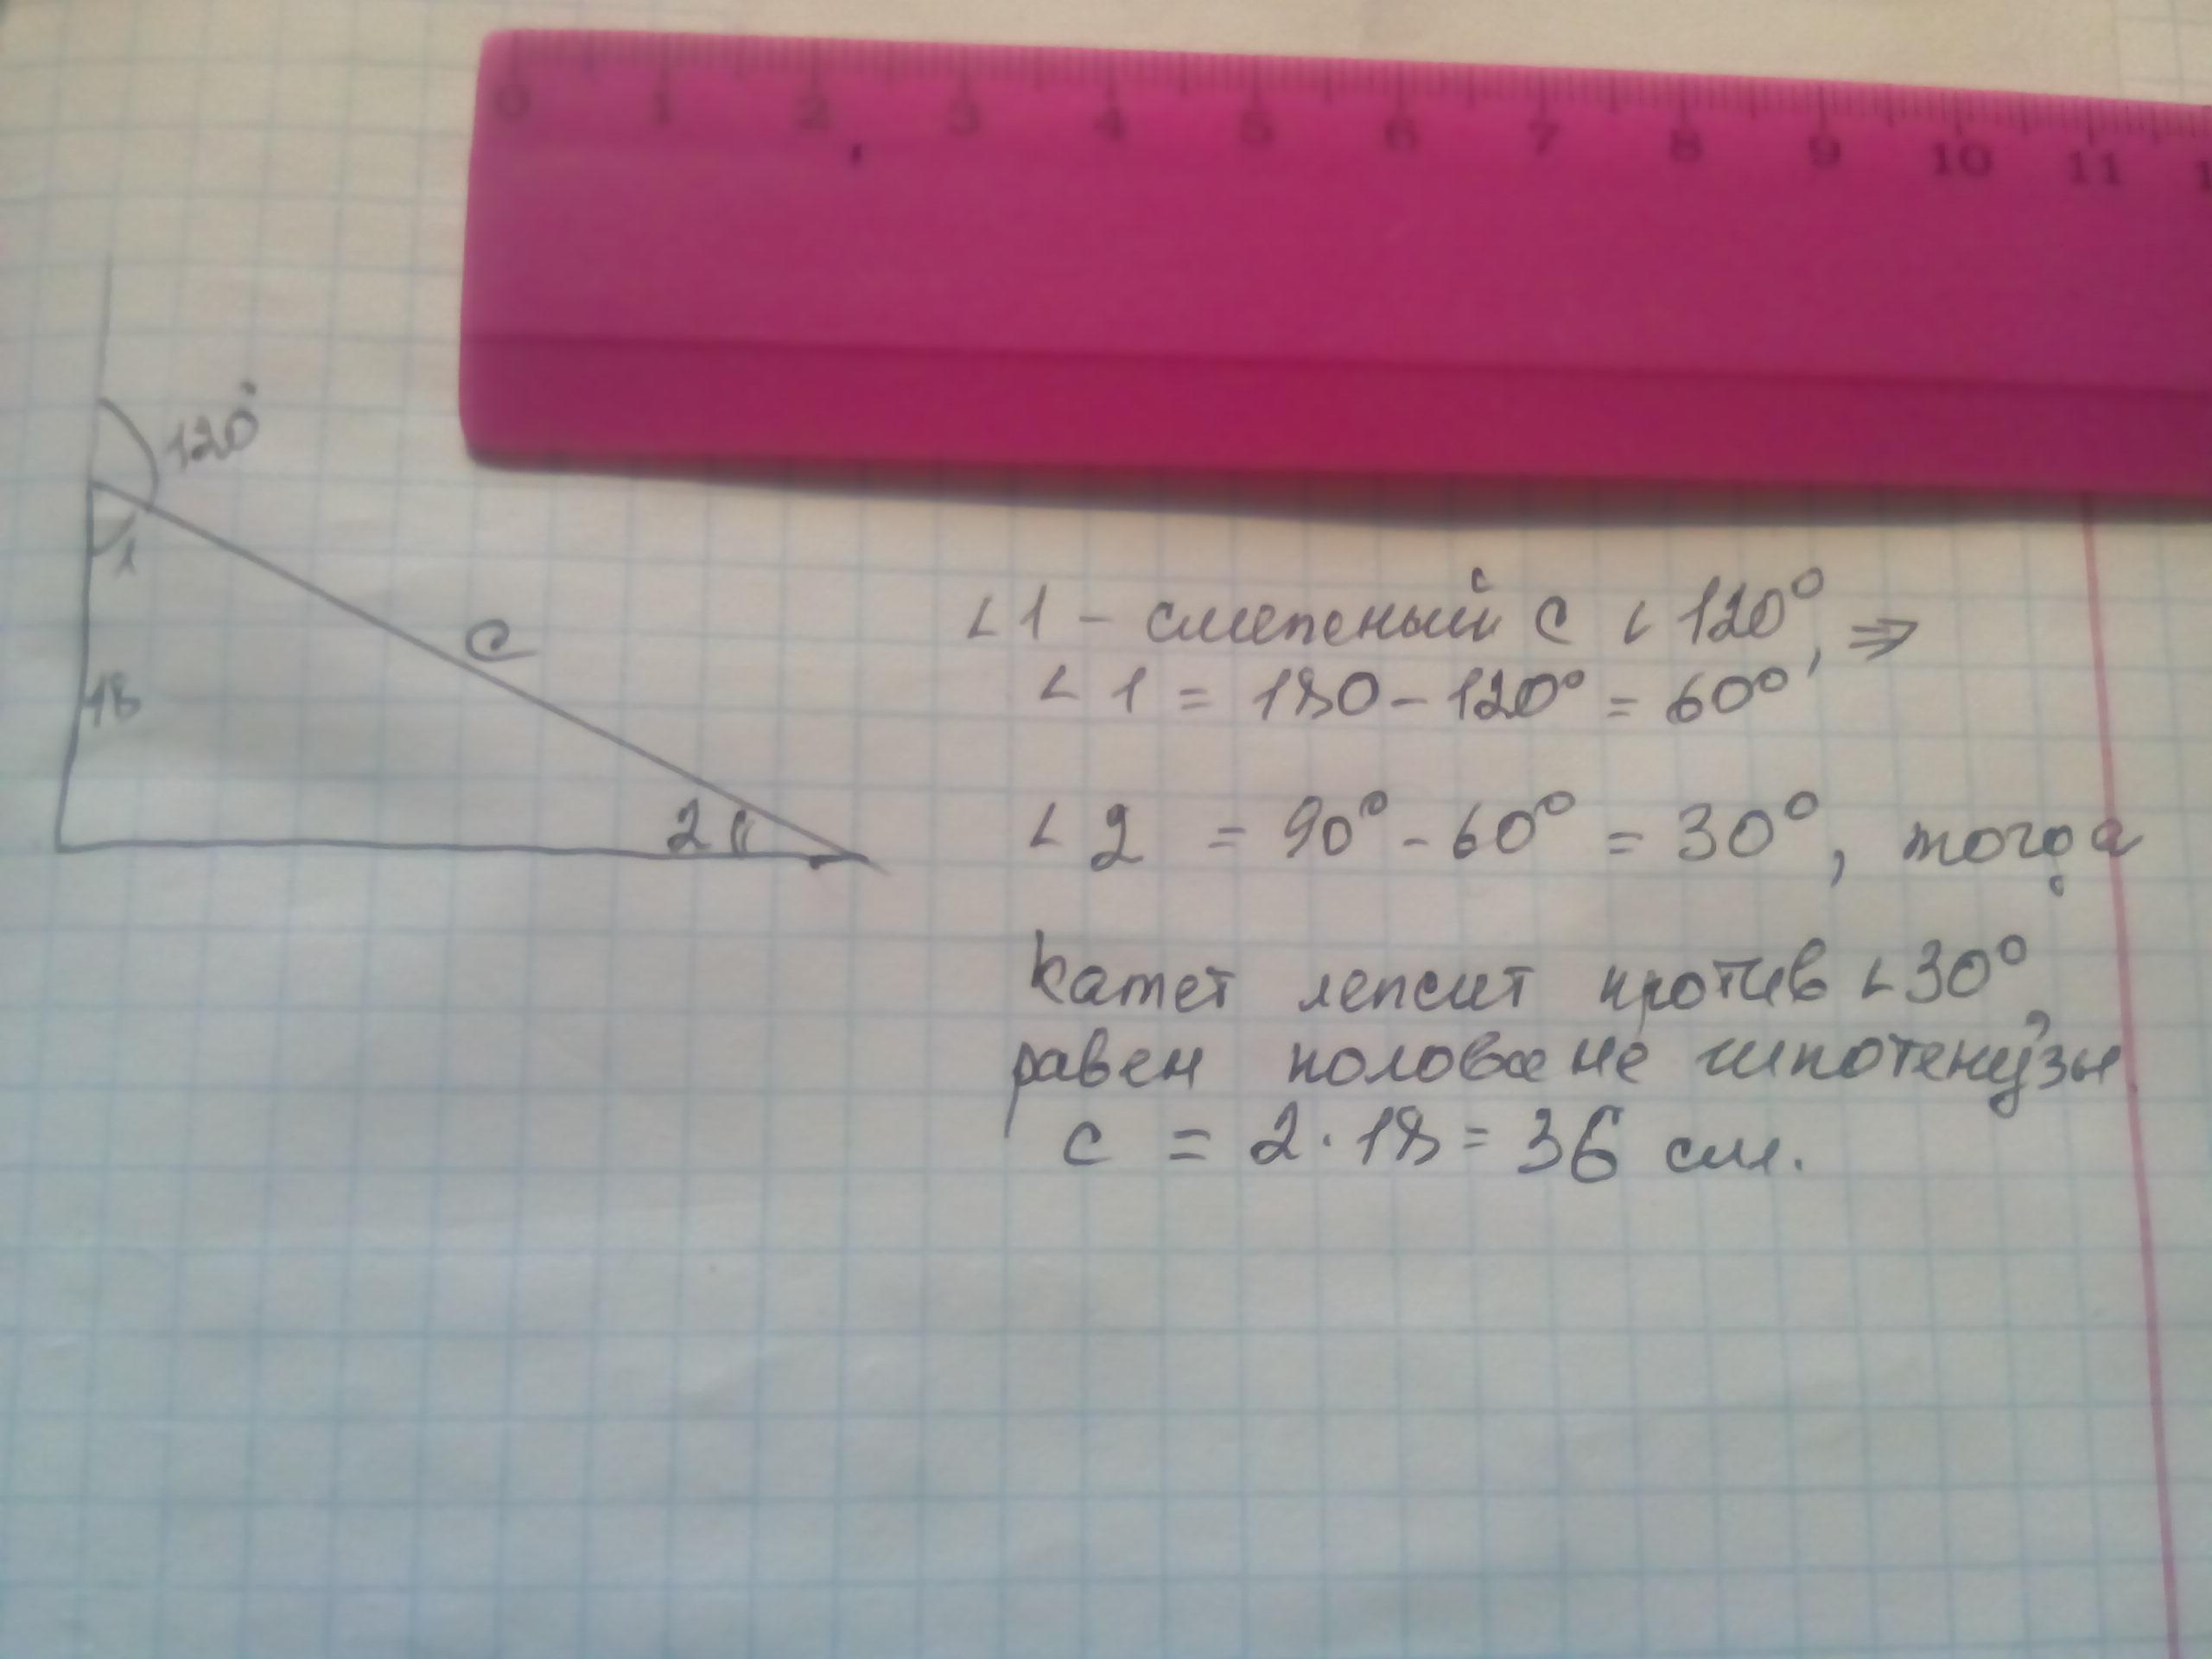 0 1 2 3 4 5 6 7 8 9 10 11 1
120°
1
c
18
2
∠1 - смежный с ∠120°, ⇒
∠1 = 180 - 120° = 60°
∠2 = 90° - 60° = 30°, тогда
катет лежит против ∠30°,
равен половине гипотенузы
c = 2·18 = 36 см.